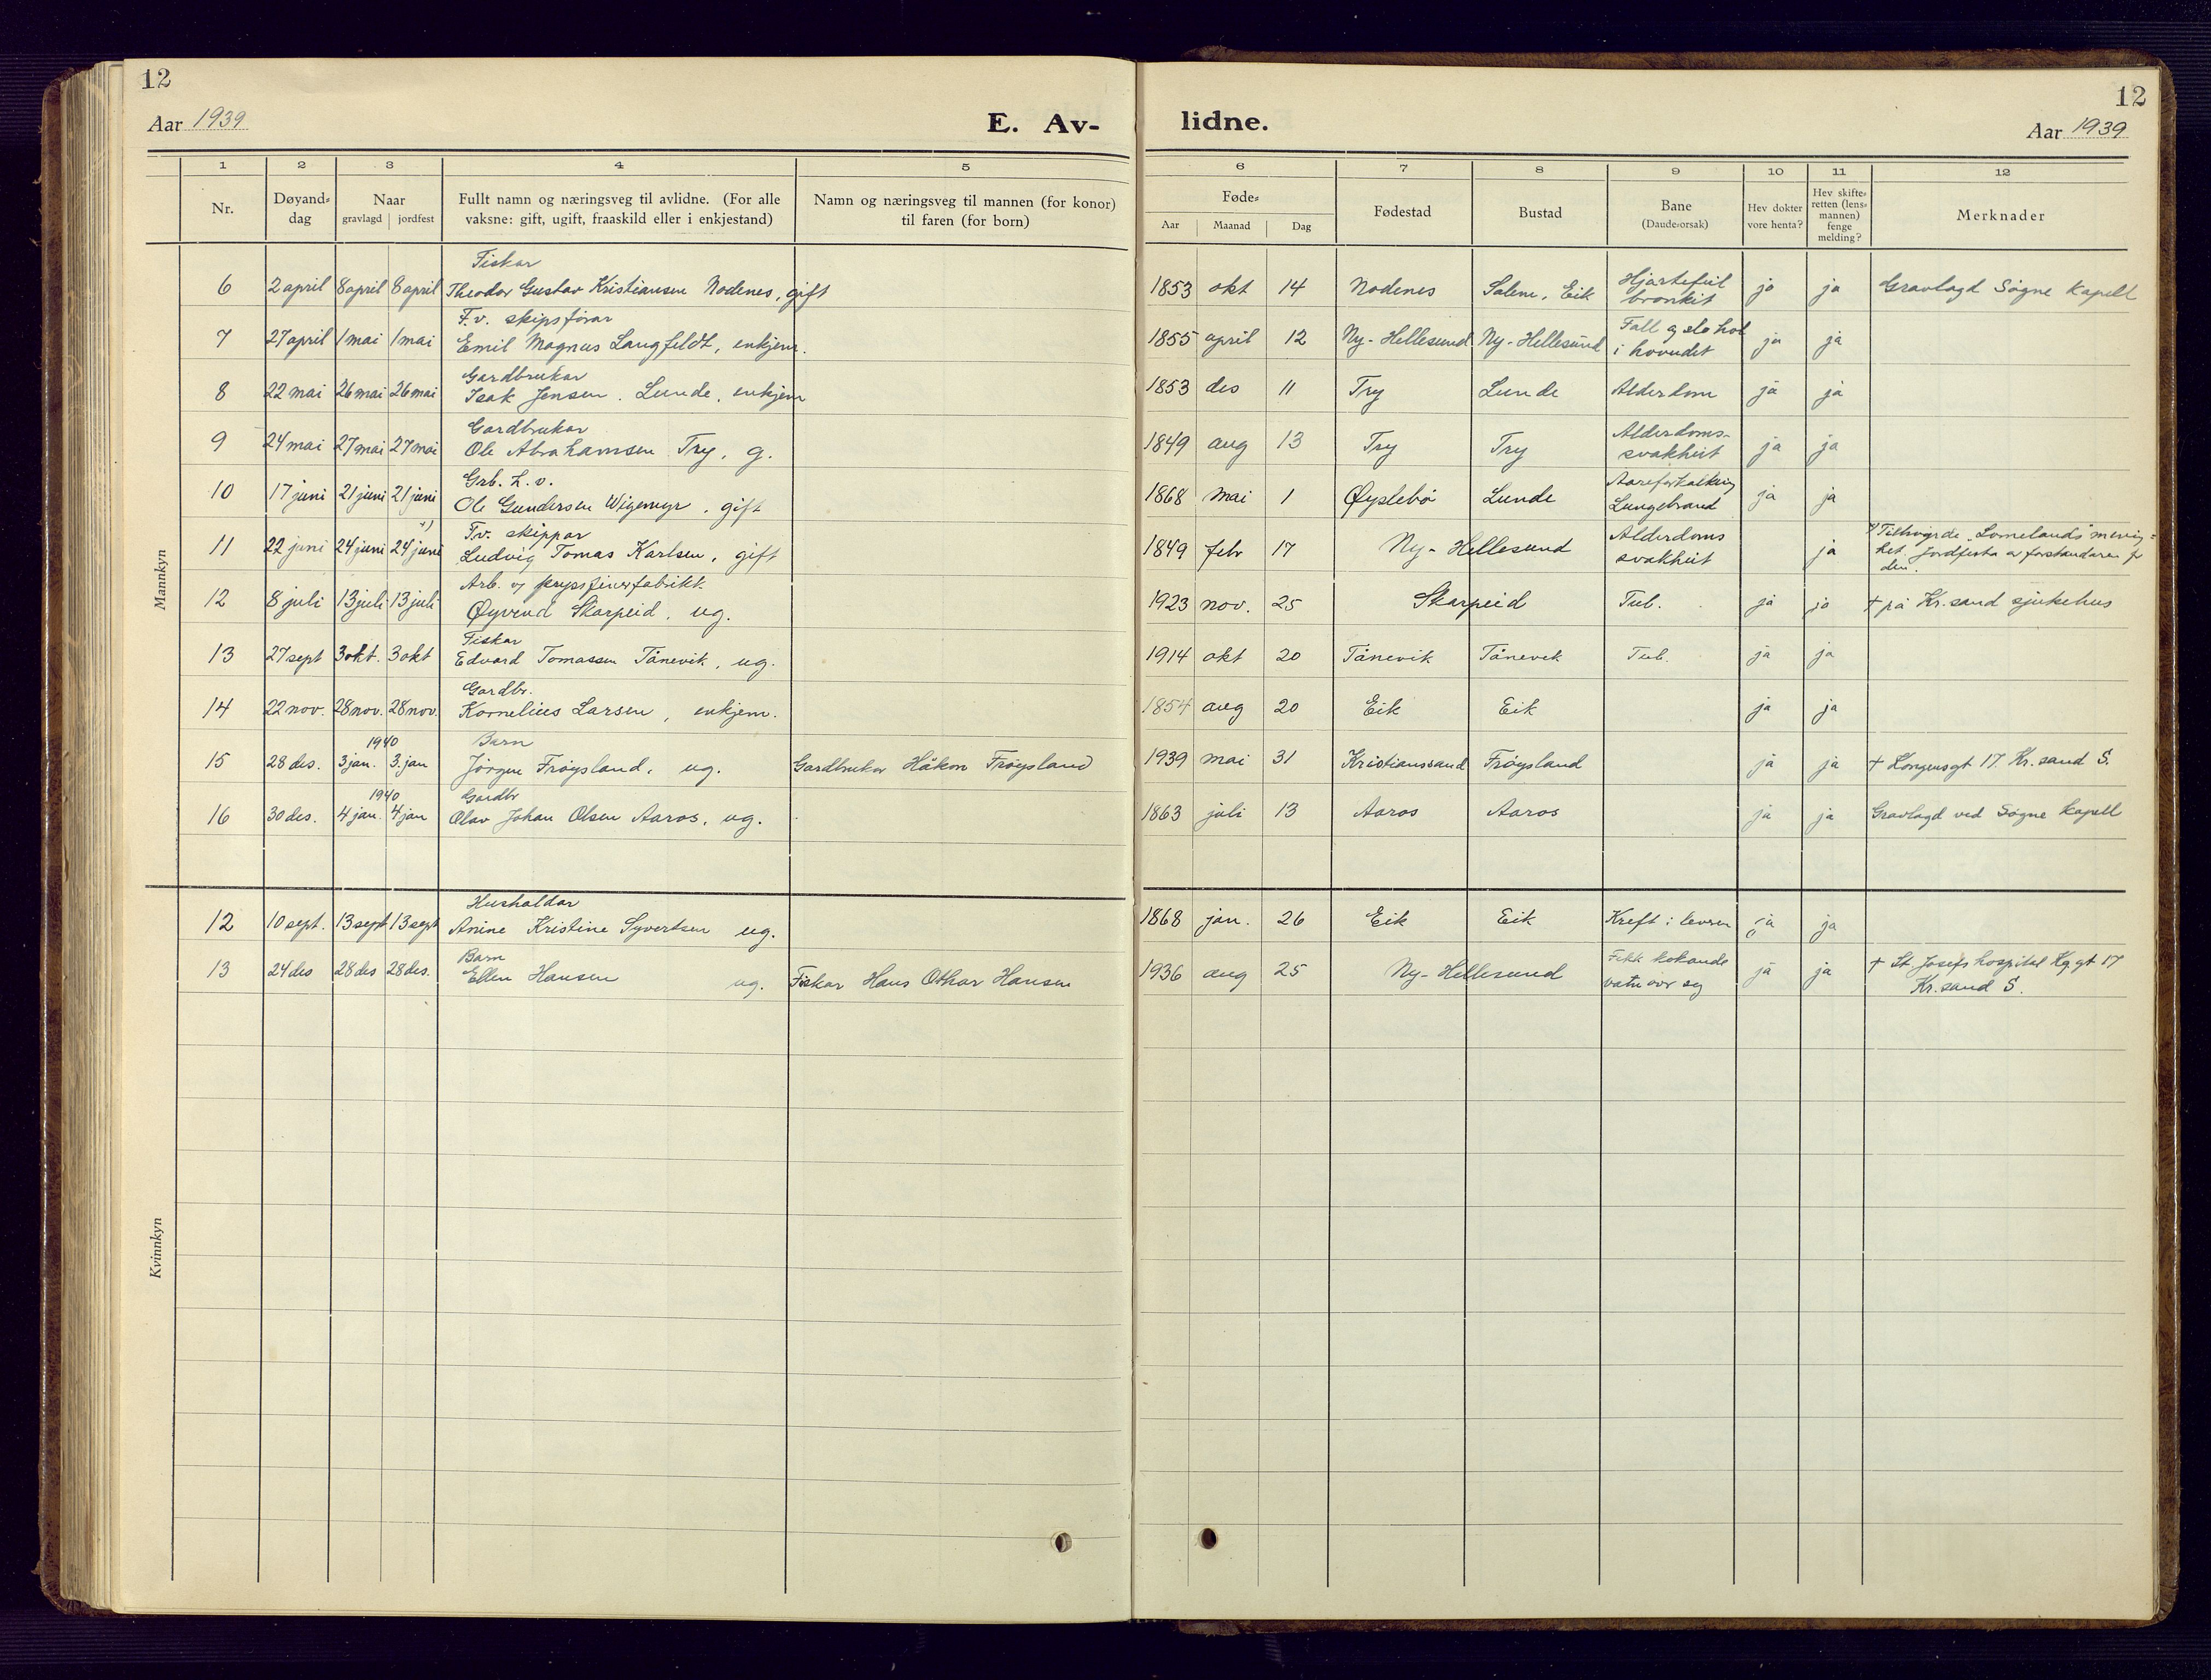 12
Aar 1939
E. Av-
lidne.
12
Aar 1939
1 2 3 4 5 6 7 8 9 10 11 12
Nr.
Døyand-
dag
Naar
gravlagd jordfest
Fullt namn og næringsveg til avlidne. (For alle
vaksne: gift, ugift, fraaskild eller i enkjestand)
Namn og næringsveg til mannen (for konor)
til faren (for born)
Føde-
Aar Maanad Dag
Fødestad
Bustad
Bane
(Daude-orsak)
Hev dokter
vore henta?
Hev skifte-
retten (lens-
mannen)
fenge
melding?
Merknader
Mannkyn
Fiskar
6 2 april 8 april 8 april Theodor Gustav Kristiansen Nodenes, gift 1853 okt 14 Nodenes Salem, Eik Hjartefeil bronkit ja ja Gravlagd Søgne Kapell
F.v. skipsførar
7 27 april 1 mai 1 mai Emil Magnus Langfeldt, enkjem. 1855 april 12 Ny-Hellesund Ny-Hellesund Fall og slo hol i hovudet ja ja
Gardbrukar
8 22 mai 26 mai 26 mai Isak Jensen Lunde, enkjem 1853 des 11 Try Lunde Alderdom ja ja
Gardbrukar
9 24 mai 27 mai 27 mai Ole Abrahamsen Try, g. 1849 aug 13 Try Try Alderdoms-svakheit ja ja
Grb.
10 17 juni 21 juni 21 juni Ole Gundersen Wigemyr, gift 1868 mai 1 Øyslebø Lunde Aareforkalking Lungebrand ja ja
F.v. skippar
11 22 juni 24 juni 24 juni x) Ludvig Tomas Karlsen, gift 1849 febr 17 Ny-Hellesund Alderdoms svakheit ja x) Tilhøyrde "Lomelands" menig-
het. Jordfesta av forstandaren for
den.
Arb.
12 8 juli 13 juli 13 juli Øyvind Skarpeid, ug. 1923 nov. 25 Skarpeid Tub. ja ja † på Kr.sand sjukehus
Fiskar
13 27 sept 3 okt. 3 okt Edvard Tomassen Tånevik, ug. 1914 okt 20 Tånevik Tånevik Tub. ja ja
Gardbr.
14 22 nov. 28 nov. 28 nov. Kornelius Larsen, enkjem. 1854 aug 20 Eik Eik ja ja
1940 Barn
15 28 des. 3 jan. 3. jan Jørgen Frøysland, ug. Gardbrukar Håkon Frøysland 1939 mai 31 Kristianssand Frøysland ja ja † Kongensgt 17. Kr.sand S.
1940 Gardbr
16 30 des. 4 jan. 4 jan Olav Johan Olsen Aaros, ug. 1863 juli 13 Aaros Aaros ja ja Gravlagd ved Søgne kapell
Kvinnkyn
Hushaldar
12 10 sept. 13 sept 13 sept Anine Kristine Syvertsen ug. 1868 jan. 26 Eik Eik Kreft i levren ja ja
Barn
13 24 des 28 des 28 des. Ellen Hansen ug. Fiskar Hans Othar Hansen 1936 aug 25 Ny-Hellesund Fekk kokande vatn over seg ja ja † St. Josefs hospital Kg.gt 17
Kr.sand S.